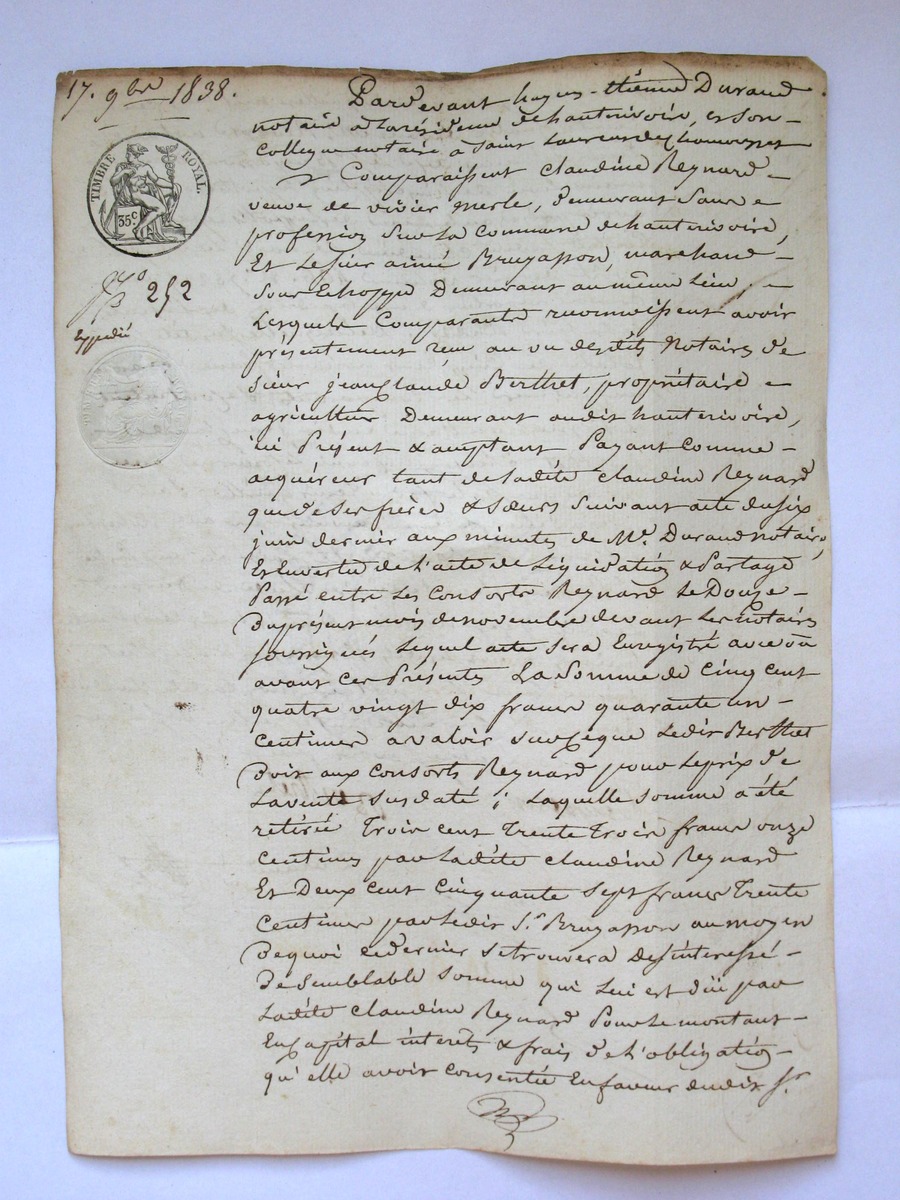 17. 9bre 1838.
TIMBRE ROYAL.
35c
No 252
Expédié
Pardevant Durand
notaire à la résidence d'hauterivoire, et Son
Collegue notaire à Saint Laurent de chamousset
Comparaissent Claudine Reynard
veuve de vivier merle, demeurant Sans
profession Sur la Commune d'hauterivoire,
Et Le Sieur aimé Bruyasson, marchand
demeurant au même Lieu,
Lesquels Comparants reconnoissent avoir
présentement reçu au vu desdits Notaires de
Sieur jean Claude Berthet, propriétaire
agriculteur Demeurant audit hauterivoire,
ici Présent & acceptant Payant Comme
acquéreur tant de Ladite Claudine Reynard
que de Ses frères & Sœurs Suivant acte du Six
juin dernier aux minutes de Me. Durand Notaire,
Et En vertu de L'acte de Liquidation & Partage
Passé entre Les Consorts Reynard Le Douze
Du présent mois de novembre devant Les Notaires
Soussignés Lequel acte Sera Enregistré avec ou
avant Ces Présentes La Somme de Cinq Cent
quatre vingt dix francs quarante un
Centimes a valoir Sur Ce que Ledit Berthet
Doit aux Consorts Reynard pour Le prix de
La vente Susdaté ; Laquelle Somme a été
retirée Trois Cent Trente Trois francs onze
Centimes par Ladite Claudine Reynard
Et Deux Cent Cinquante Sept francs Trente
Centimes par Ledit Sr. Bruyasson au moyen
De quoi ce dernier Se trouvera Desintéressé
De Semblable Somme qui Lui est düe par
Ladite Claudine Reynard Pour Le montant
En Capital interets & frais de L'obligation
qu'elle avoit Consentie En faveur dudit Sr